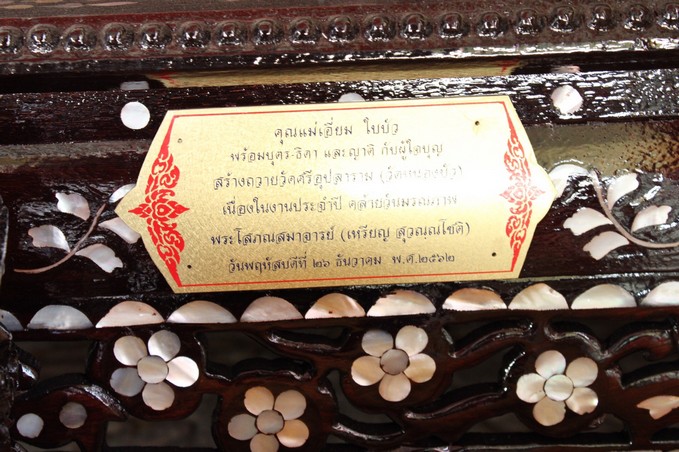 คุณแม่เอี่ยม ใบบัว
พร้อมบุตร-ธิดา และญาติ กับผู้ใจบุญ
สร้างถวายวัดศรีอุปลาราม (วัดหนองบัว)
เนื่องในงานประจำปี คล้ายวันมรณภาพ
พระโสภณสมาจารย์ (เหรียญ สุวณฺณโชติ)
วันพฤหัสบดีที่ ๒๖ ธันวาคม พ.ศ.๒๕๖๒